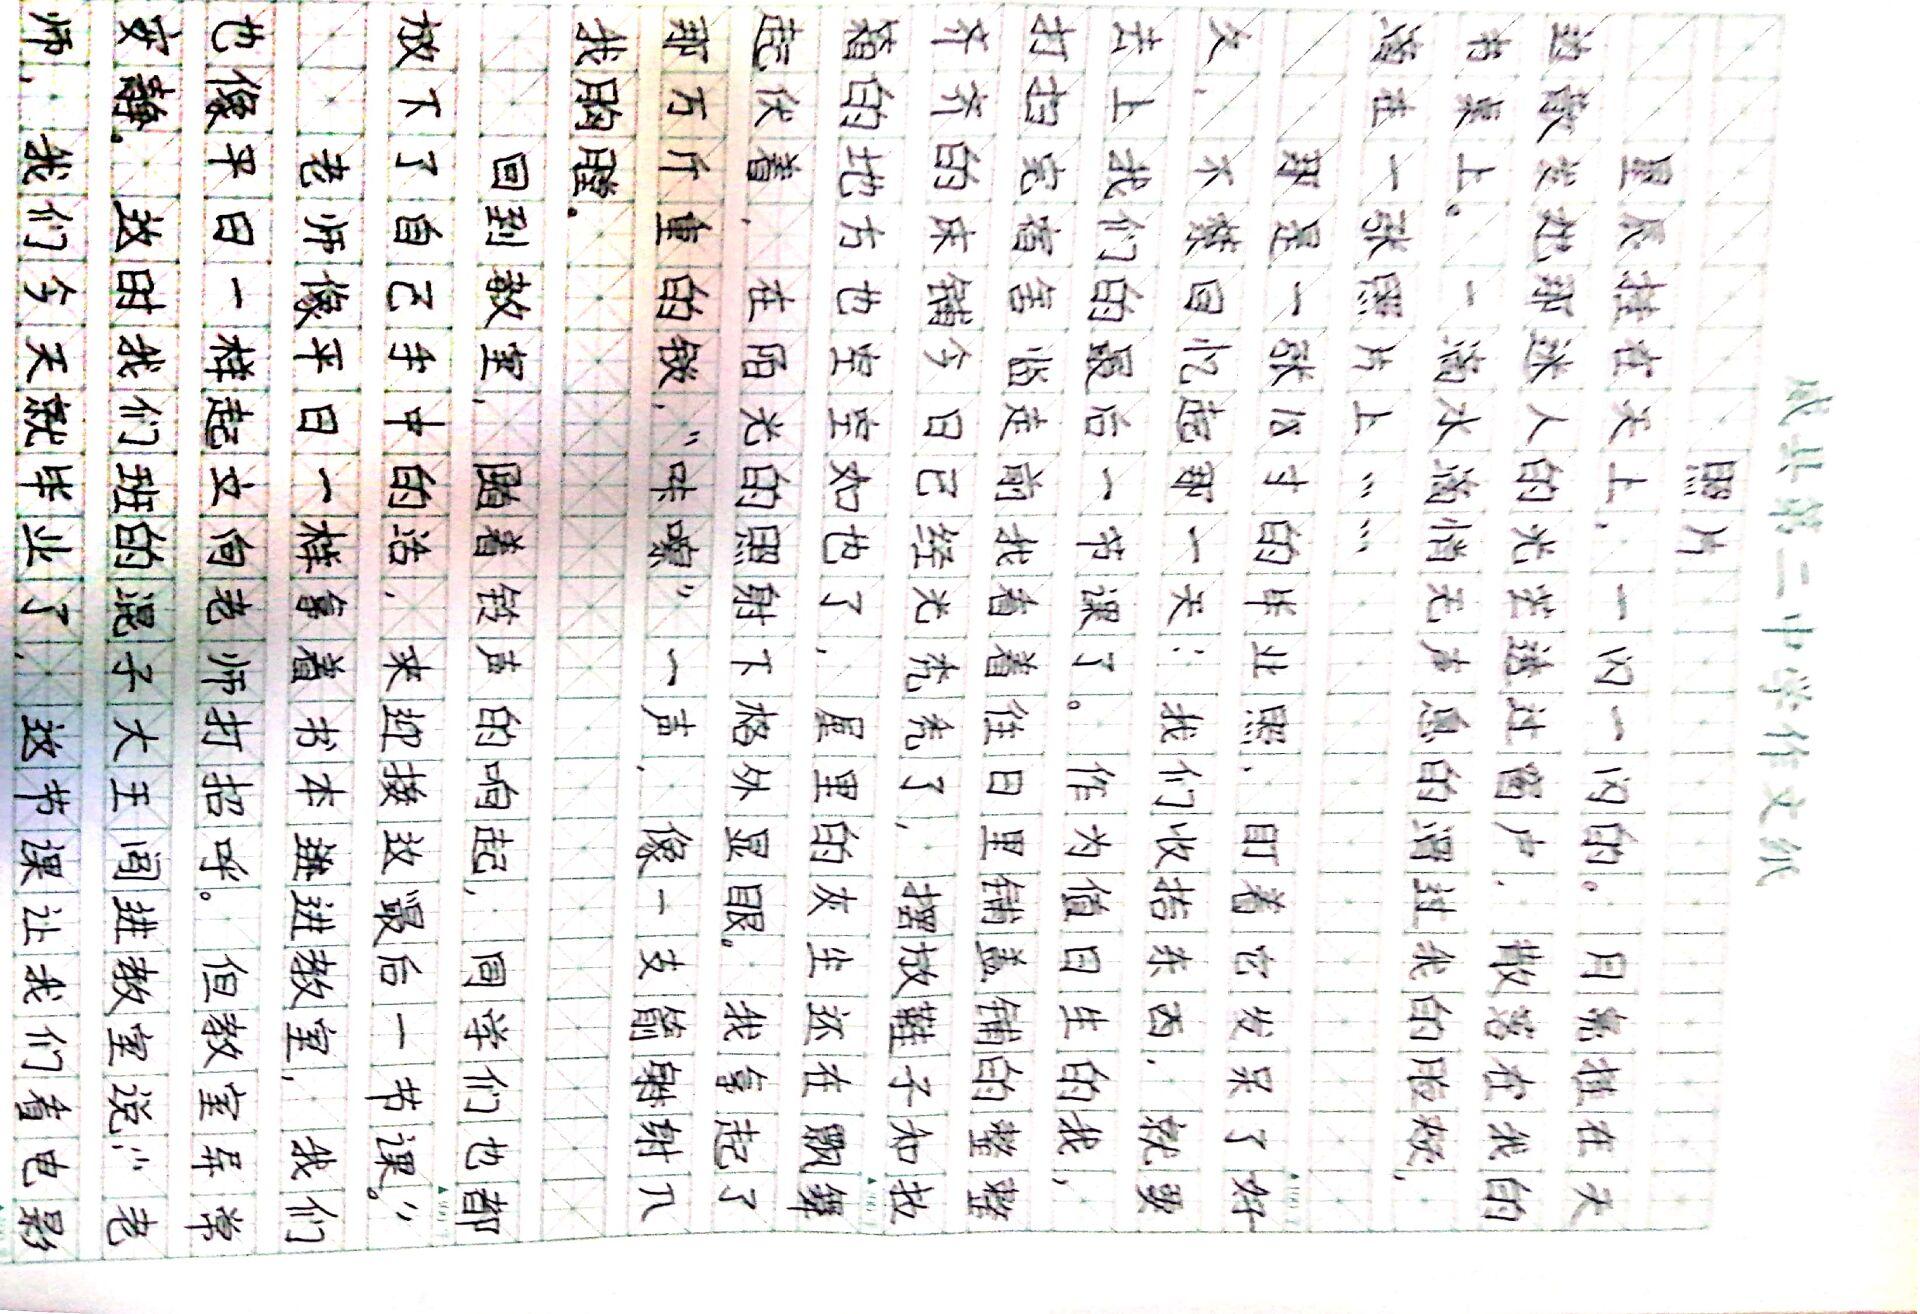 第二小学作文纸
照片
星辰挂在天上,一闪一闪的。月亮挂在天
边散发她那迷人的光芒透过窗户,散落在我的
书桌上。一滴水滴悄无声息的滑过我的脸颊,
落在一张照片上……
那是一张18寸的毕业照,盯着它发呆了好
久,不禁回忆起那一天:我们收拾东西,就要
去上我们的最后一节课了。作为值日生的我,
打扫完宿舍临走前我看着往日里铺盖铺的整整
齐齐的床铺今日已经光秃秃了,摆放鞋子和放
箱的地方也空空如也了,屋里的灰尘还在飘舞
起伏着,在阳光的照射下格外显眼。我拿起了
那万斤重的锁,“咔嚓”一声,像一支箭射入
我胸膛。
回到教室,随着铃声的响起,同学们也都
放下了自己手中的活,来迎接这最后一节课。”
老师像平日一样拿着书本进教室,我们
也像平日一样起立向老师打招呼。但教室异常
安静。这时我们班的混子大王闯进教室说:“老
师,我们今天就毕业了,这节课让我们看电影